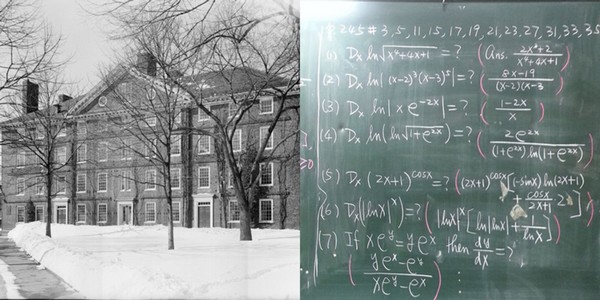 P 245 # 3, 5, 11, 15, 17, 19, 21, 23, 27, 31, 33, 35
(1) Dx ln√(x⁴+4x+1) = ? (Ans. (2x³+2)/(x⁴+4x+1))
(2) Dx ln|(x-2)³(x-3)⁵| = ? ((8x-19)/((x-2)(x-3))
(3) Dx ln|x e^(-2x)| = ? ((1-2x)/x)
(4) Dx ln(ln√(1+e^(2x))) = ? (2e^(2x)/((1+e^(2x)) ln(1+e^(2x))))
(5) Dx (2x+1)^(cosx) = ? ((2x+1)^(cosx)[(-sinx) ln(2x+1) + cosx/(2x+1)·])
(6) Dx(|lnx|^x) = ? (|lnx|^x [ln|lnx| + 1/lnx])
(7) If xe^y = ye^x then dy/dx = ?
((ye^x - e^y)/(xe^y - e^x))